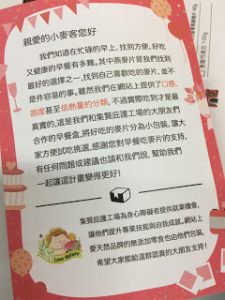 親愛的小麥客您好
我們知道在忙碌的早上，找到方便，好吃
又健康的早餐有多難。其中燕麥片是我們找到
最好的選擇之一，找到自己喜歡吃的麥片，並不
是件容易的事，雖然我們在網站上提供了口感、
甜度甚至低熱量的分類，不過實際吃到才是最
真實的，這是我們和葉贊庇護工場的大朋友們
合作的早餐盒，將好吃的麥片分為小包裝，讓大
家方便試吃挑選，感謝您對早餐吃麥片的支持，
有任何問題或建議也請和我們說，幫助我們
一起讓這計畫變得更好！
葉贊庇護工場為身心障礙者提供就業機會，
讓他們提升專業技能與自我成就，網站上
愛天然品牌的無添加零食也由他們包裝，
希望大家能給這群認真的大朋友支持！
Love nature
100g